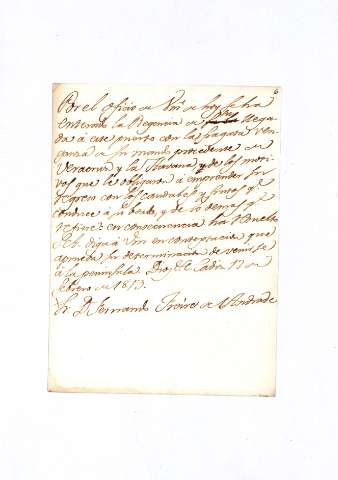 6
Por el oficio de Vm de hoy se ha
enterado la Regencia de su llega-
da á este puerto con la fragata Ven-
ganza de su mando procedente de
Veracruz y la Havana, y de los moti-
vos que le obligaron á emprender su
regreso con los caudales y frutos qe
conduce á su bordo, y de lo demas qe
refiere: en consecuencia ha resuelto
S.A. diga á Vm en contestacion que
aprueba su determinacion de venirse
á la peninsula. Dios &c Cadiz 17 de
febrero de 1813.
Sr. D. Fernando Freire de Andrade